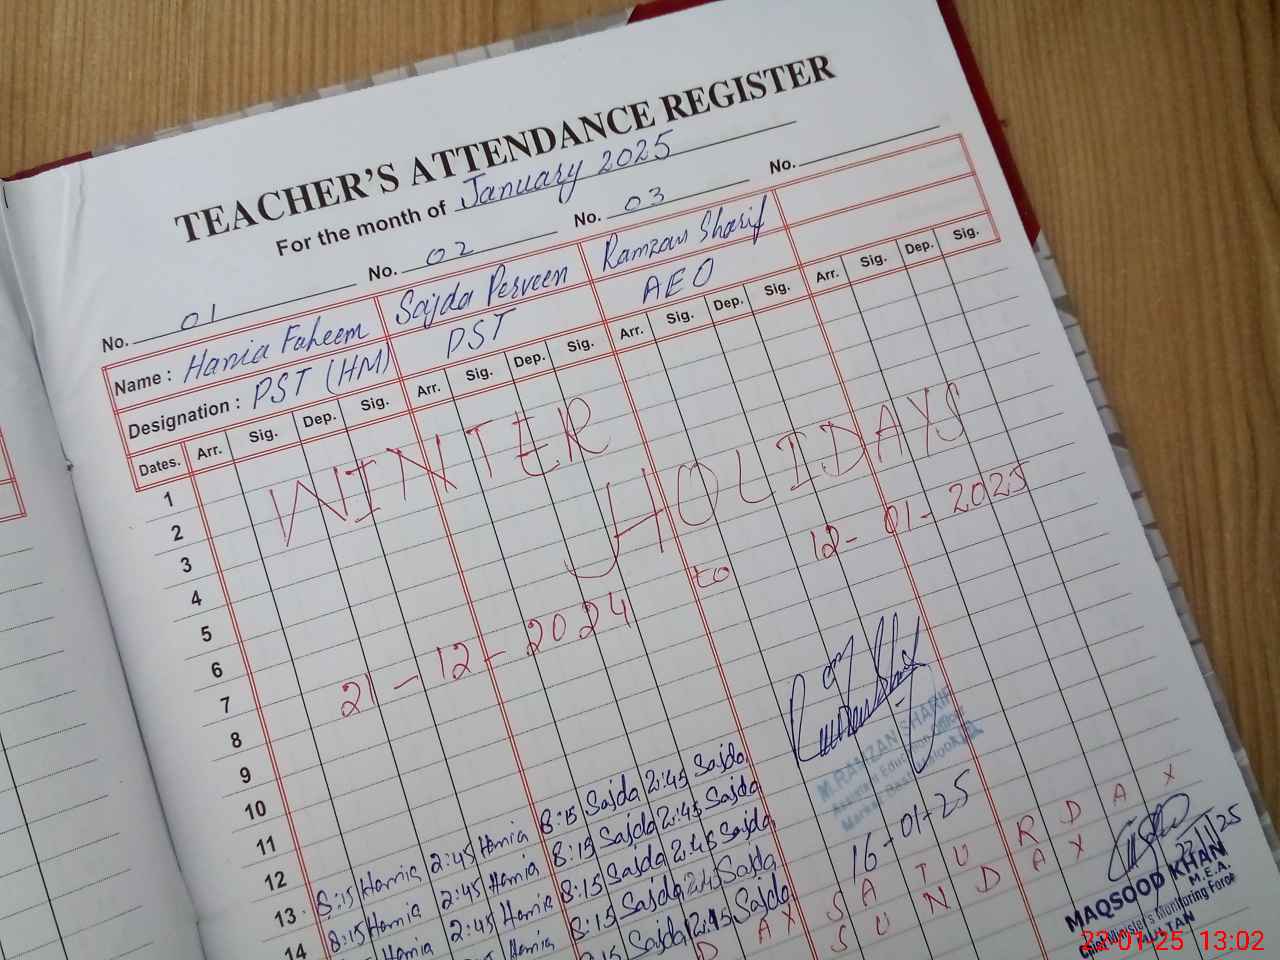 TEACHER'S ATTENDANCE REGISTER
For the month of January 2025
No. 01 No. 02 No. 03 No.
Name : Hamia Faheem Sajda Perveen Ramzan Sharif
Designation : PST (HM) PST AEO
Dates. Arr. Sig. Dep. Sig. Arr. Sig. Dep. Sig. Arr. Sig. Dep. Sig. Arr. Sig. Dep. Sig.
1
2
3
4
5
6
7
8
9
10
11
12
13
14
WINTER HOLIDAYS
21-12-2024 to 12-01-2025
8:15 Hamia 2:45 Hamia 8:15 Sajda 2:45 Sajda
8:15 Hamia 2:45 Hamia 8:15 Sajda 2:45 Sajda
Hamia 2:45 Hamia 8:15 Sajda 2:45 Sajda
Hamia 8:15 Sajda 2:45 Sajda
8:15 Sajda 2:45 Sajda
M. RAMZAN SHARIF
Assistant Education Officer
Markaz
16-01-25
SATURDAY
SUNDAY
MAQSOOD KHAN
M.E.A.
Chief Minister's Monitoring Force
MULTAN
22-01-25 13:02